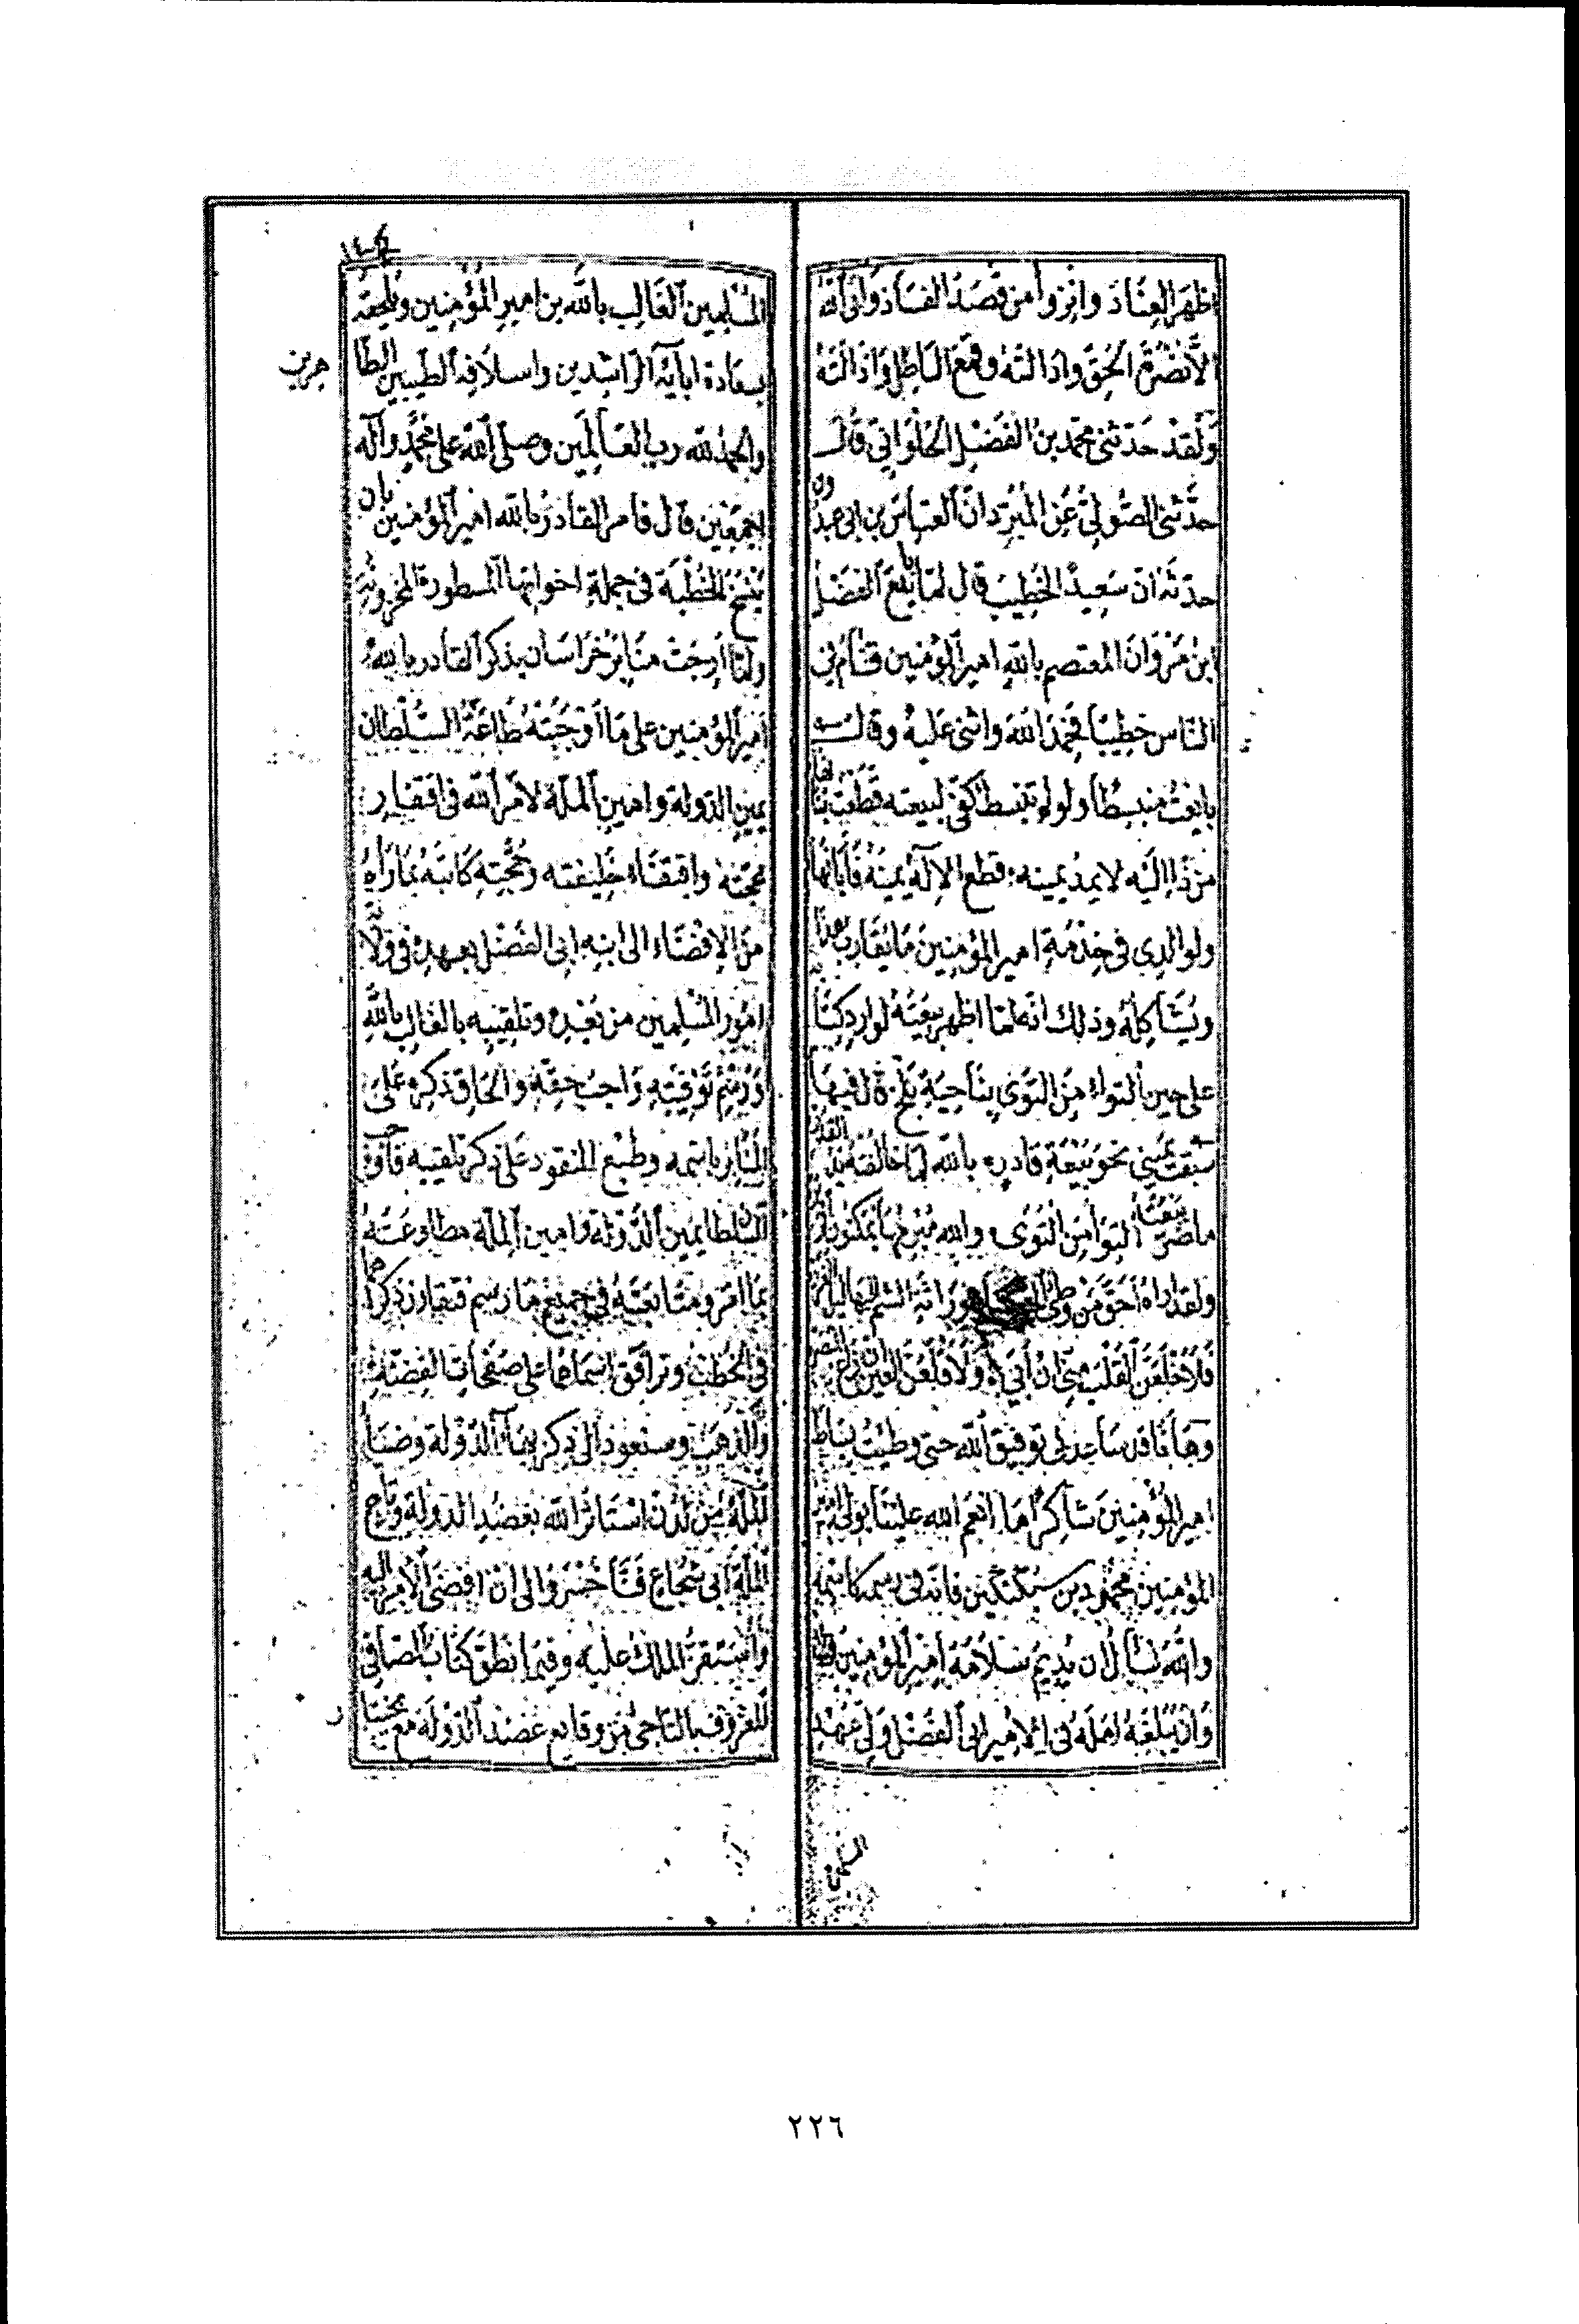 اظهر العناد وابرزوا من قصد الفساد وابى الله
الا نصرة الحق وادالته وقمع الباطل واذالته
ولقد حدثنى محمد بن الفضل الحلوانى قال
حدثنى الصولى عن المبرد ان العباس بن ابى عبدون
حدثه ان سعيدا الخطيب قال لما بايع الفضل
ابن مروان المعتصم بالله امير المؤمنين قام فى
الناس خطيبا فحمد الله واثنى عليه وقال
بايعت منبسطا ولو لم تنبسط كفى لبيعته قطعت بنانها
من ذا اليه لا يمد يمينه قطع الاله يمينه فأبانها
ولوالدى فى خدمة امير المؤمنين ما يقارب هذا
ويشاكله وذلك انه لما اظهر بيعته لواردكنا
على حين التواء من النوى بناحية بلخ قال فيها
سبقت يمينى نحو بيعة قادر بالله لما خالفته
ما ضر بيعته التوا من التوى والله مبرم
ولقد اراه احق من وطئ وراثة
فلأخلعن القلب منى ان ابى ولأقلعن العين ان
وها انا قد ساعدنى توفيق الله حتى وطئت بساط
امير المؤمنين شاكرا ما انعم الله علينا بولى امير
المؤمنين محمود بن سبكتكين فانه فى رسمه كاسمه
والله نسأل ان يديم سلامة امير المؤمنين
وان يبلغه امله فى الامير ابى الفضل ولى عهد
المسلمين
المسلمين الغالب بالله بن امير المؤمنين ويلحقه
بسعادة ابائه الراشدين واسلافه الطيبين الطاهرين
والحمد لله رب العالمين وصلى الله على محمد وآله
اجمعين قال فامر القادر بالله امير المؤمنين بان
ينسخ الخطبة فى جملة اخواتها المسطورة المخزونة
ولما ارجت منابر خراسان بذكر القادر بالله
امير المؤمنين على ما اوجبته طاعة السلطان
يمين الدولة وامين الملة لامر الله فى اقتفار
محجته واقتفاء خليفته وحجته كاتبه بما رآه
من الافضاء الى ابنه ابى الفضل بعهده فى ولاية
امور المسلمين من بعده وتلقيبه بالغالب بالله
ورسم توفيته واجب حقه والحاق ذكره على
المنابر باسمه وطبع النقود على ذكر تلقيبه فاوجب
السلطان يمين الدولة وامين الملة مطاوعته
بما امر ومتابعته فى جميع ما رسم فتقارن ذكراهما
فى الخطب وترافق اسماهما على صفحات الفضة
والذهب وسنعود الى ذكر بهاء الدولة وضياء
الملة من لدن استأثر الله بعضد الدولة وتاج
الملة ابى شجاع فناخسرو الى ان افضى الامر اليه
واستقر الملك عليه وفيما نطق كتاب الصابى
المعروف بالتاجى من وقايع عضد الدولة مع بختيار
٢٢٦